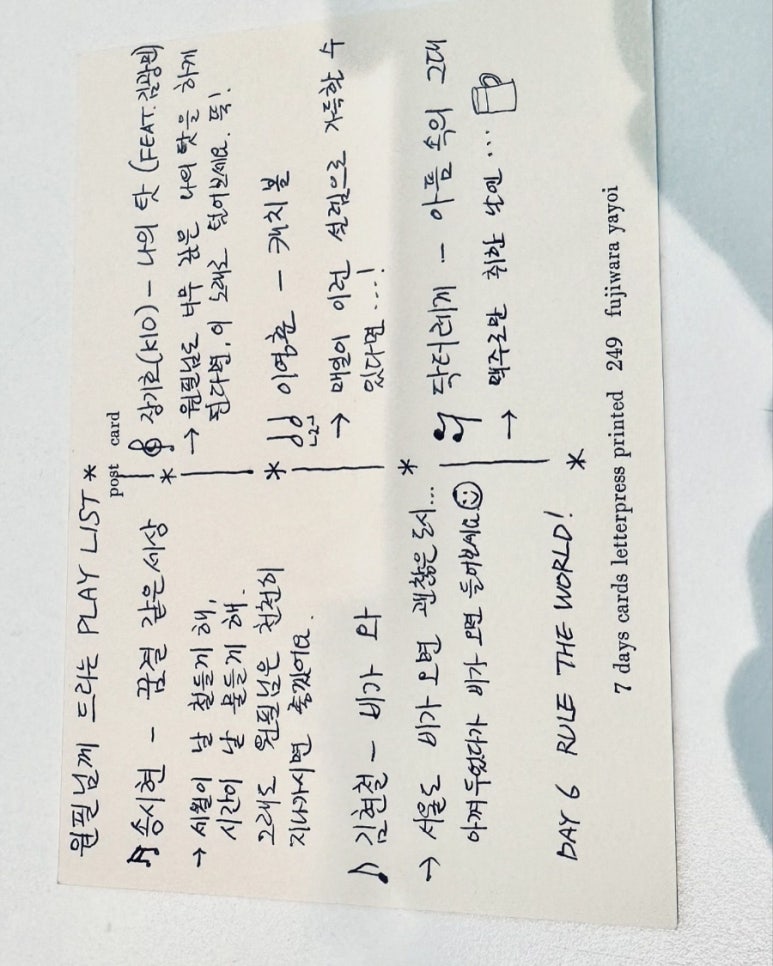 원필님께 드리는 PLAY LIST *
post card
송시현 - 꿈결 같은 세상
→ 세월이 날 철들게 해,
시간이 날 물들게 해.
그래도 원필님은 천천히
지나가시면 좋겠어요.
김현철 - 비가 와
→ 서울도 비가 오면 괜찮은 도시...
아껴 두었다가 비가 오면 들어보세요
DAY 6 RULE THE WORLD!
장기호(KIO) - 나의 탓 (FEAT.김광민)
→ 원필님도 너무 깊은 나의 탓을 하게
된다면, 이 노래로 털어보세요. 뚝!
*
이영훈 - 캐치볼
→ 매일이 이런 설렘으로 가득할 수
있다면...!
*
닥터레게 - 아픔 속의 그대
→ 맥주로만 취한 낮엔...
*
*
7 days cards letterpress printed 249 fujiwara yayoi